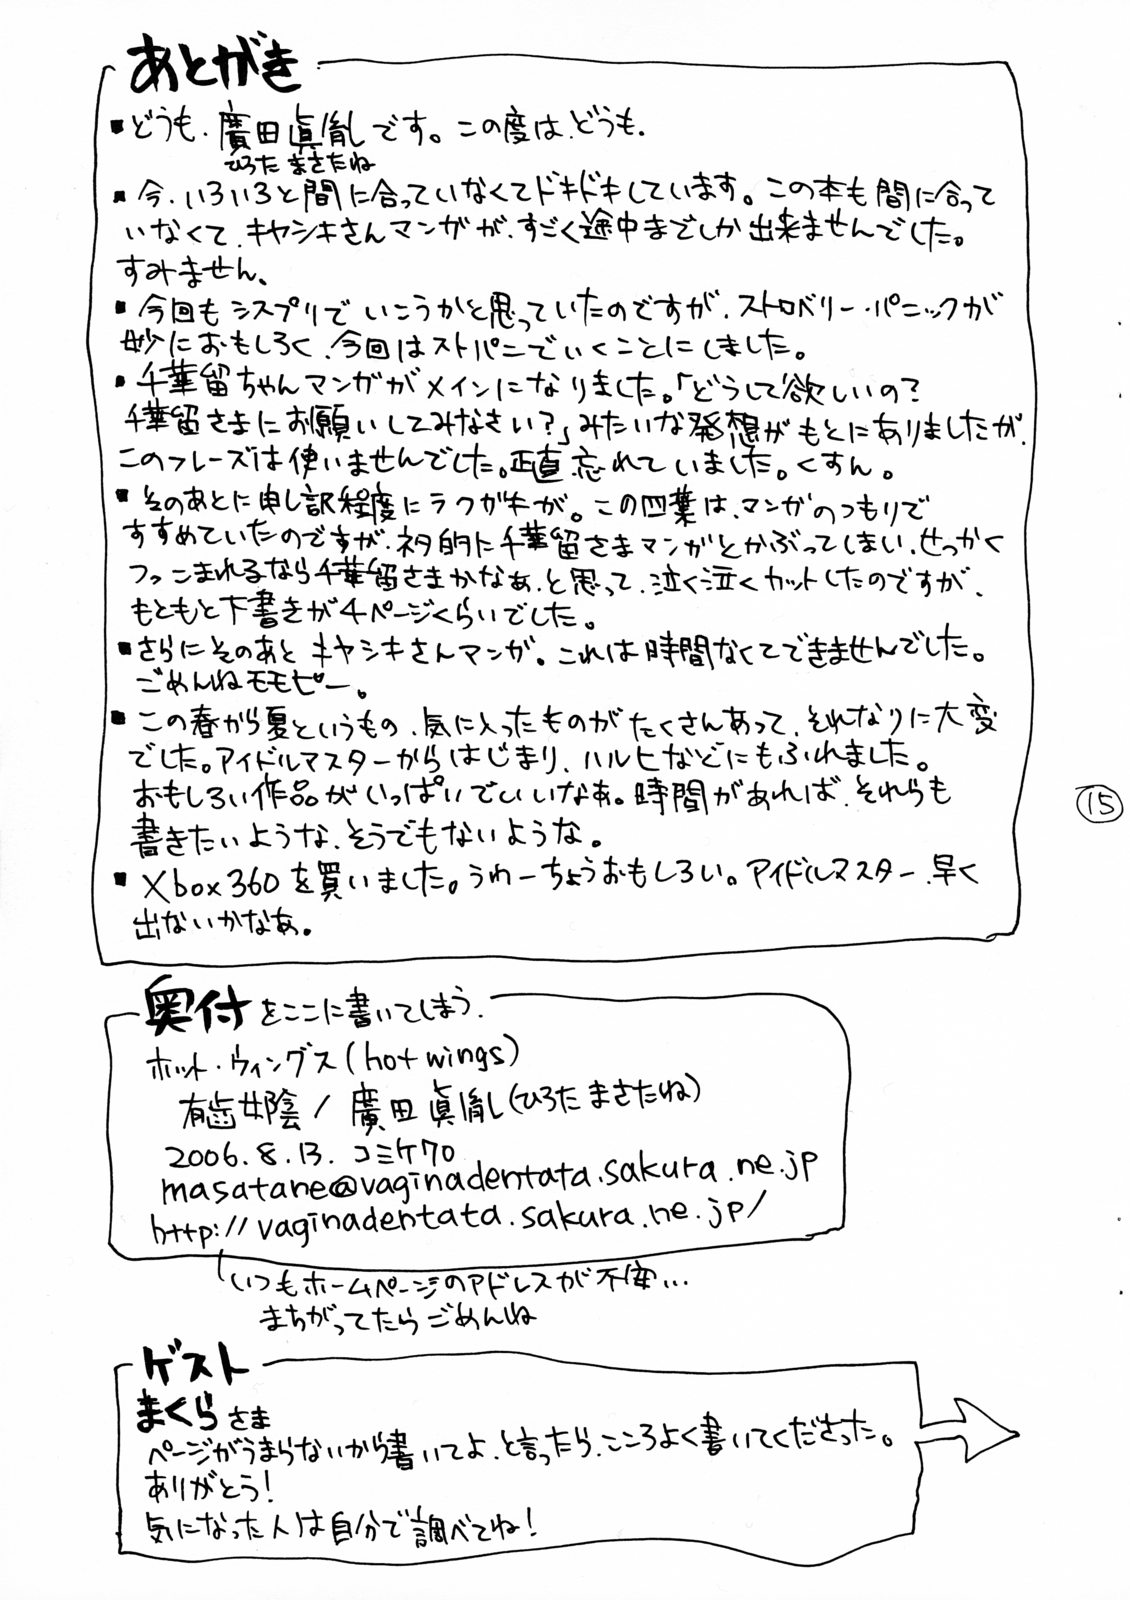 あとがき
▪どうも、廣田眞胤です。この度は、どうも。
ひろた まさたね
▪今、いろいろと間に合っていなくてドキドキしています。この本も間に合って
いなくて、キヤシキさんマンガが、すごく途中までしか出来ませんでした。
すみません。
▪今回もシスプリでいこうかと思っていたのですが、ストロベリー・パニックが
妙におもしろく、今回はストパニでいくことにしました。
▪千華留ちゃんマンガがメインになりました。「どうして欲しいの?
千華留さまにお願いしてみなさい?」みたいな発想がもとにありましたが、
このフレーズは使いませんでした。正直忘れていました。くすん。
▪そのあとに申し訳程度にラクガキが。この四葉は、マンガのつもりで
すすめていたのですが、ネタ的に千華留さまマンガとかぶってしまい、せっかく
つっこまれるなら千華留さまかなぁ、と思って、泣く泣くカットしたのですが、
もともと下書きが4ページくらいでした。
▪さらにそのあとキヤシキさんマンガ。これは時間なくてできませんでした。
ごめんねモモピー。
▪この春から夏というもの、気に入ったものがたくさんあって、それなりに大変
でした。アイドルマスターからはじまり、ハルヒなどにもふれました。
おもしろい作品がいっぱいでいいなあ。時間があれば、それらも
書きたいような、そうでもないような。
▪Xbox360を買いました。うわーちょうおもしろい。アイドルマスター、早く
出ないかなあ。
15
奥付をここに書いてしまう。
ホット・ウィングス(hot wings)
有歯女陰/廣田眞胤(ひろた まさたね)
2006.8.13. コミケ70
masatane@vaginadentata.sakura.ne.jp
http://vaginadentata.sakura.ne.jp/
いつもホームページのアドレスが不安...
まちがってたらごめんね
ゲスト
まくらさま
ページがうまらないから書いてよ、と言ったら、こころよく書いてくださった。
ありがとう!
気になった人は自分で調べてね!